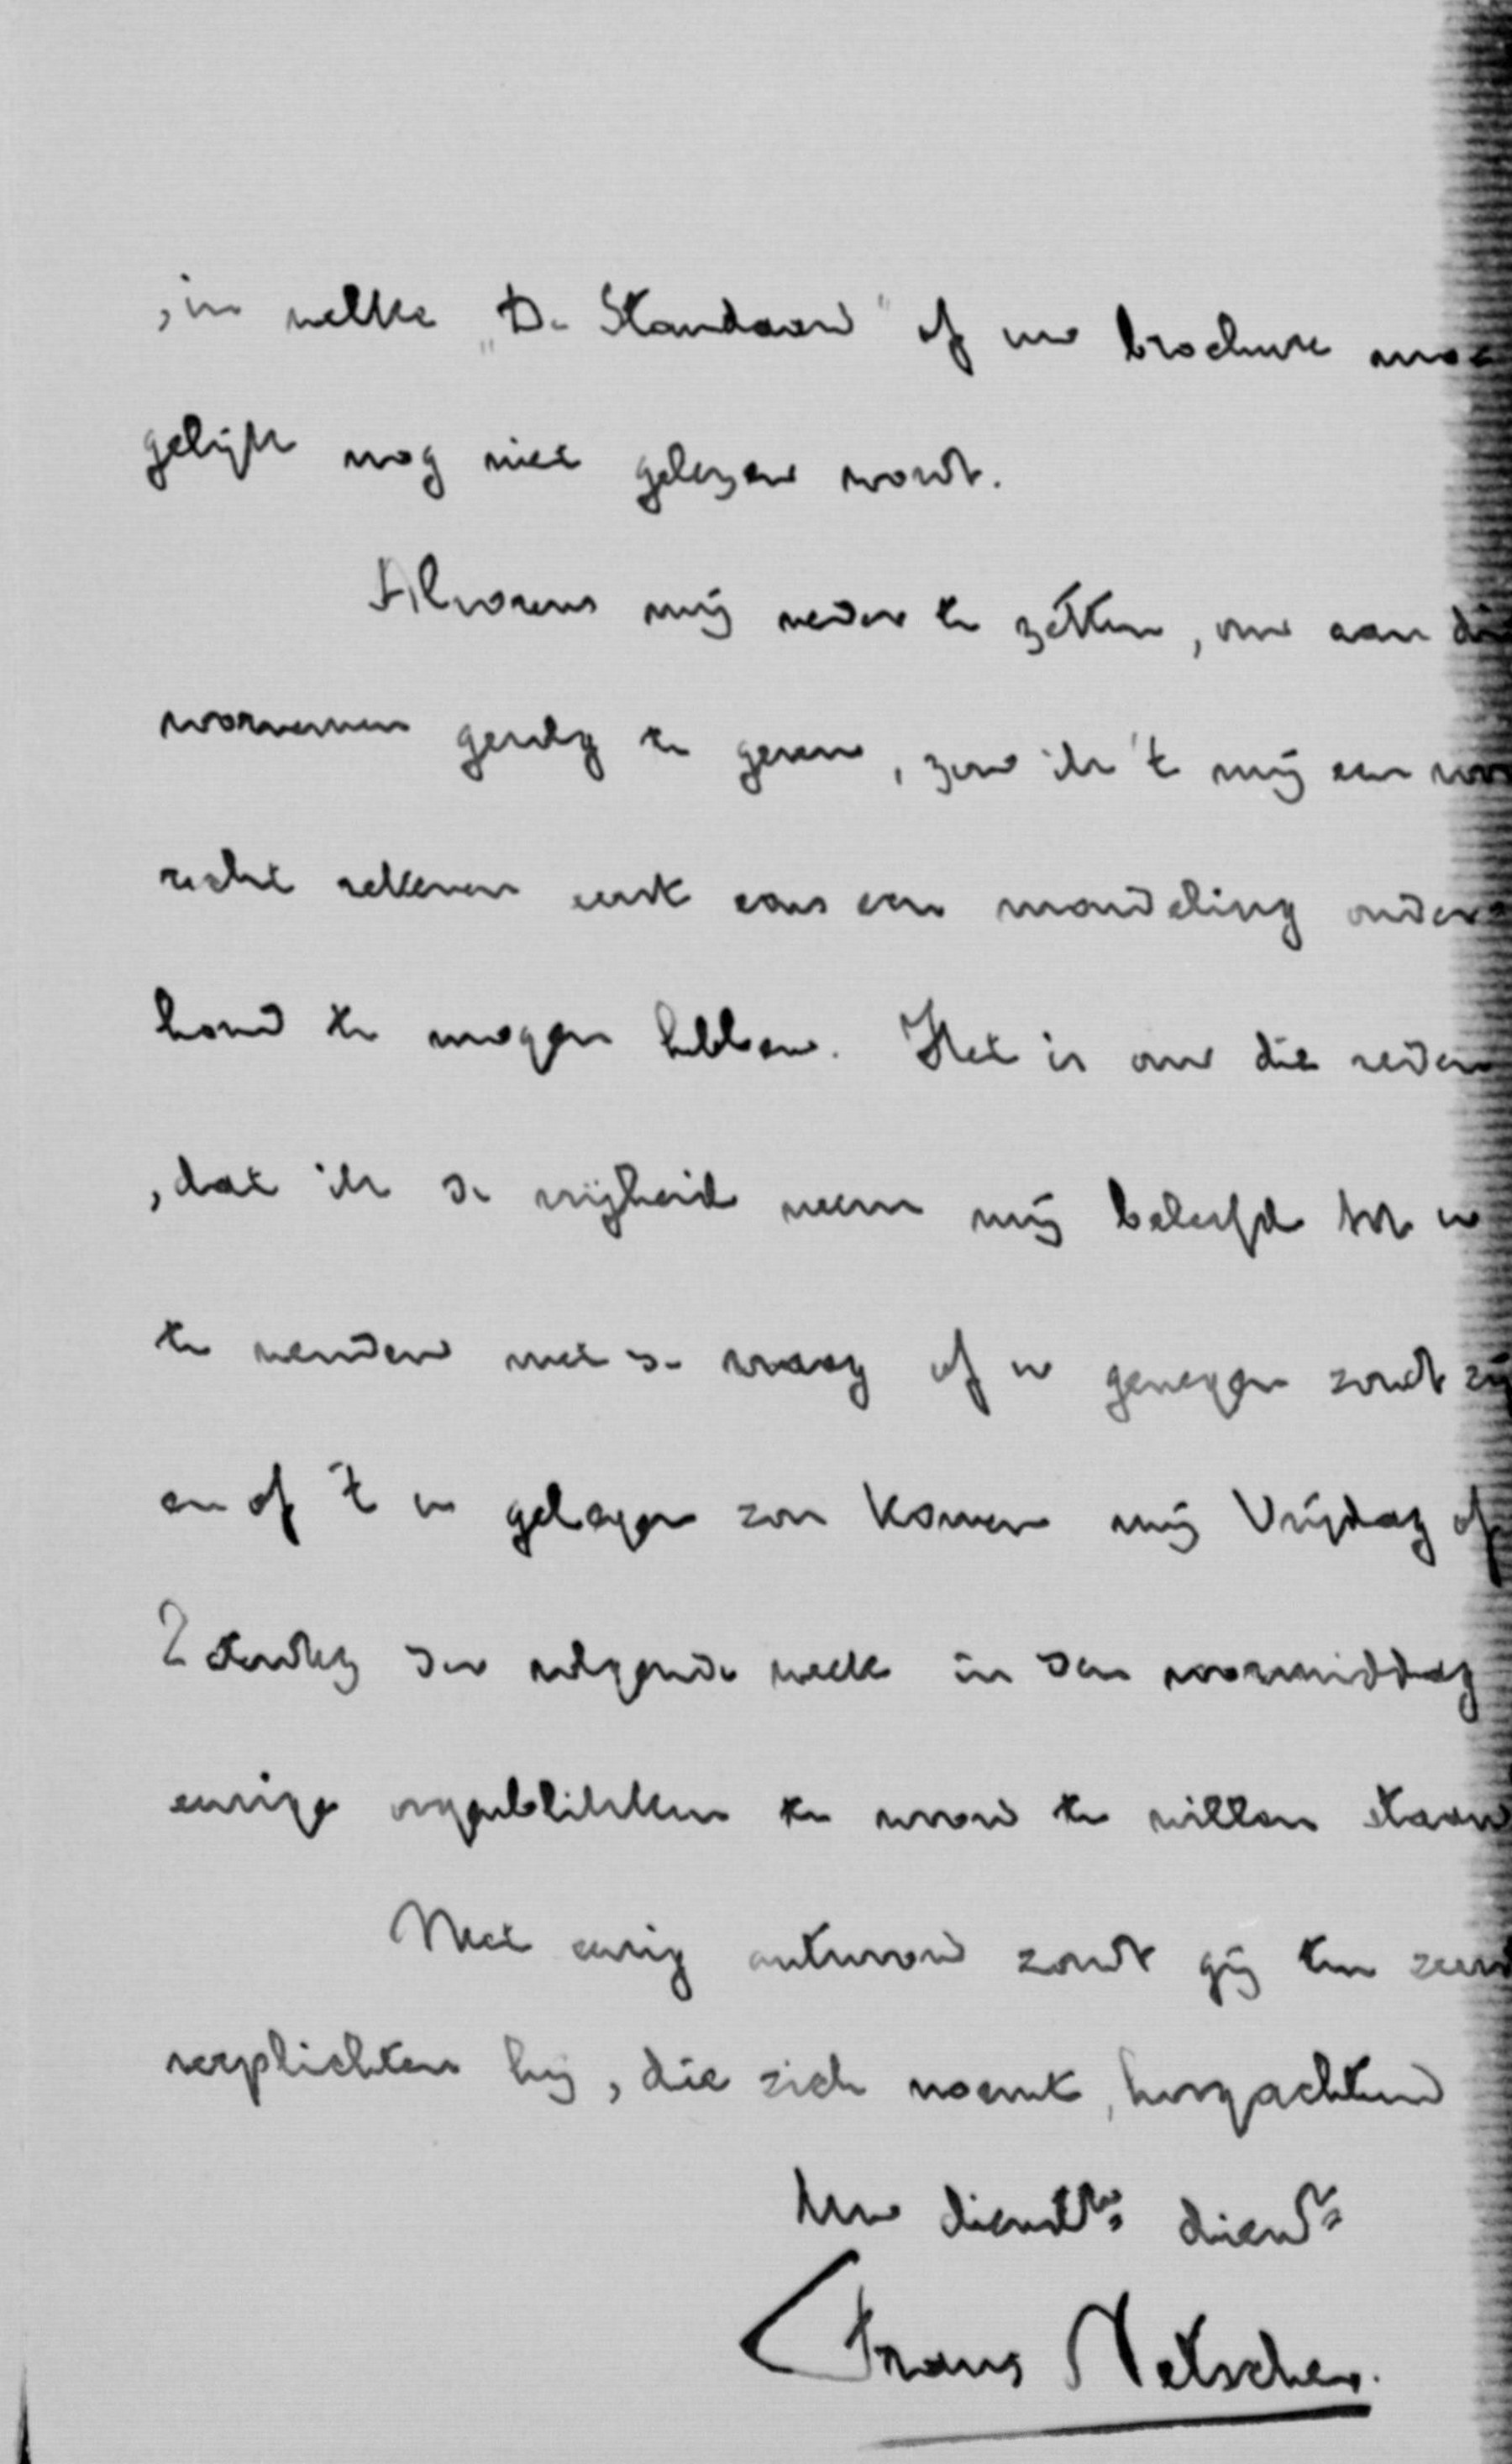 , in welke „De Standaard" of uw brochure moe
gelijk nog niet gelezen wordt.
Alvorens mij neder te zetten, om aan dit
voornemen gevolg te geven, zou ik 't mij een voor
recht rekenen eerst eens een mondeling onder
houd te mogen hebben. Het is om die reden
, dat ik de vrijheid neem mij beleefd tot u
te wenden met de vraag of u genegen zoudt zijn
en of 't u gelegen zou komen mij Vrijdag of
Zaterdag der volgende week in den voormiddag
eenige oogenblikken te woord te willen staan
Met eenig antwoord zoudt gij ten zeerst
verplichten hij, die zich noemt, hoogachtend
Uw dienstw. dienr.
Frans Netscher.